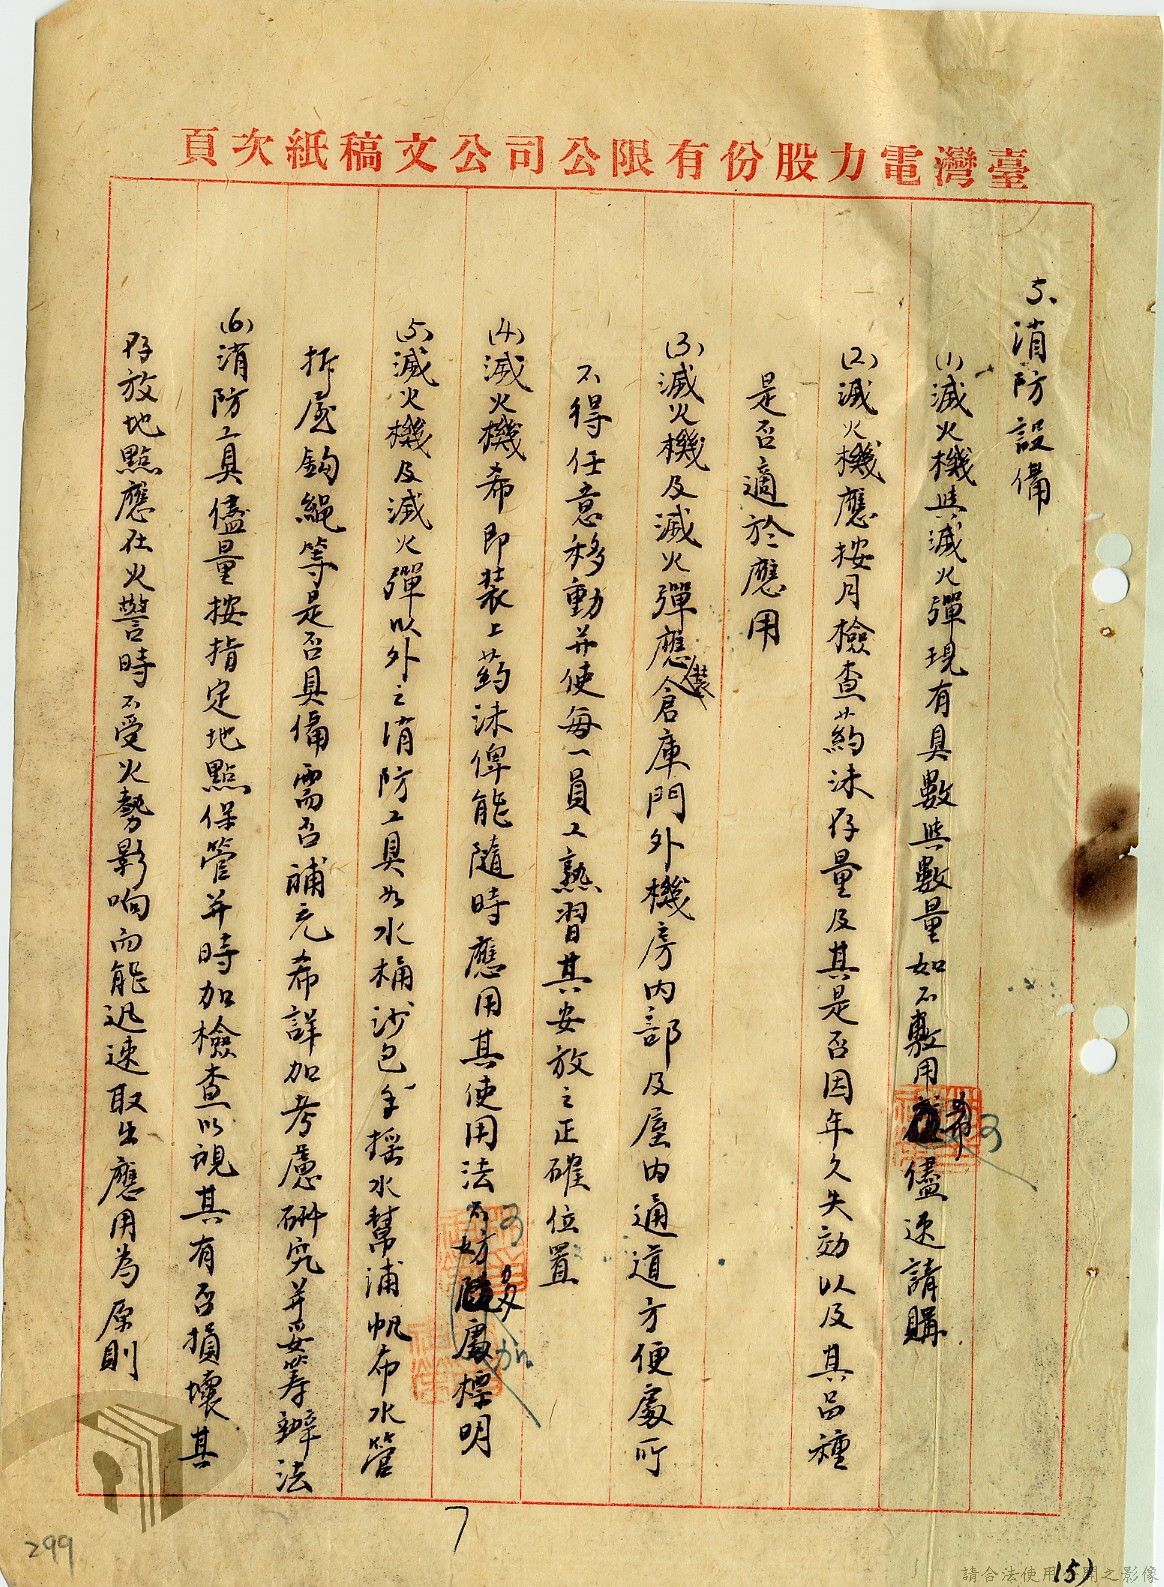 臺灣電力股份有限公司公文稿紙次頁
5、消防設備
(1)滅火機與滅火彈現有具數與數量如不敷用希儘速請購
(2)滅火機應按月檢查葯沫存量及其是否因年久失効以及其品種
是否適於應用
(3)滅火機及滅火彈應裝倉庫門外機房內部及屋內通道方便處所
不得任意移動并使每一員工熟習其安放之正確位置
(4)滅火機希即裝上葯沫俾能隨時應用其使用法
多加
處標明
(5)滅火機及滅火彈以外之消防工具如水桶沙包手搖水幫浦帆布水管
拆屋鈎繩等是否具備需否補充希詳加考慮研究并妥籌辦法
(6)消防工具儘量按指定地點保管并時加檢查以視其有否損壞其
存放地點應在火警時不受火勢影响而能迅速取出應用為原則
7
299
15)
請合法使用公開之影像